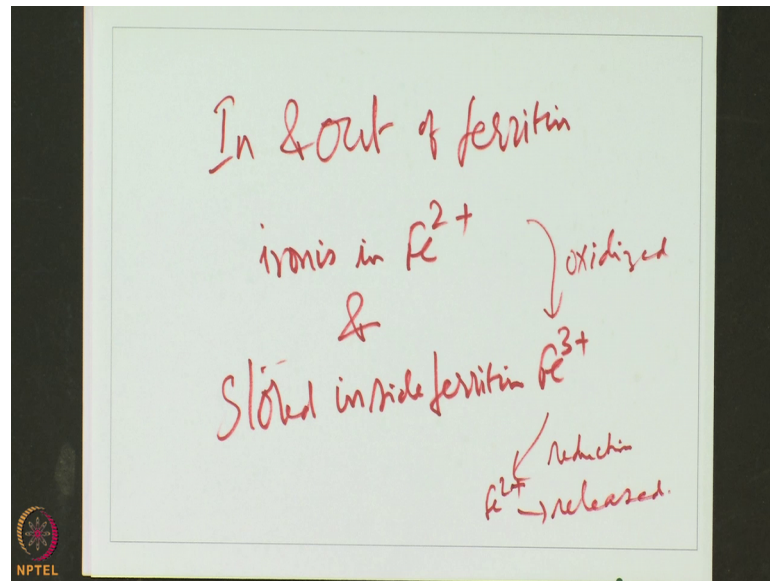 In & out of ferritin
iron is in Fe2+
oxidized
&
Stored inside ferritin Fe3+
reduction
Fe2+ → released.
NPTEL